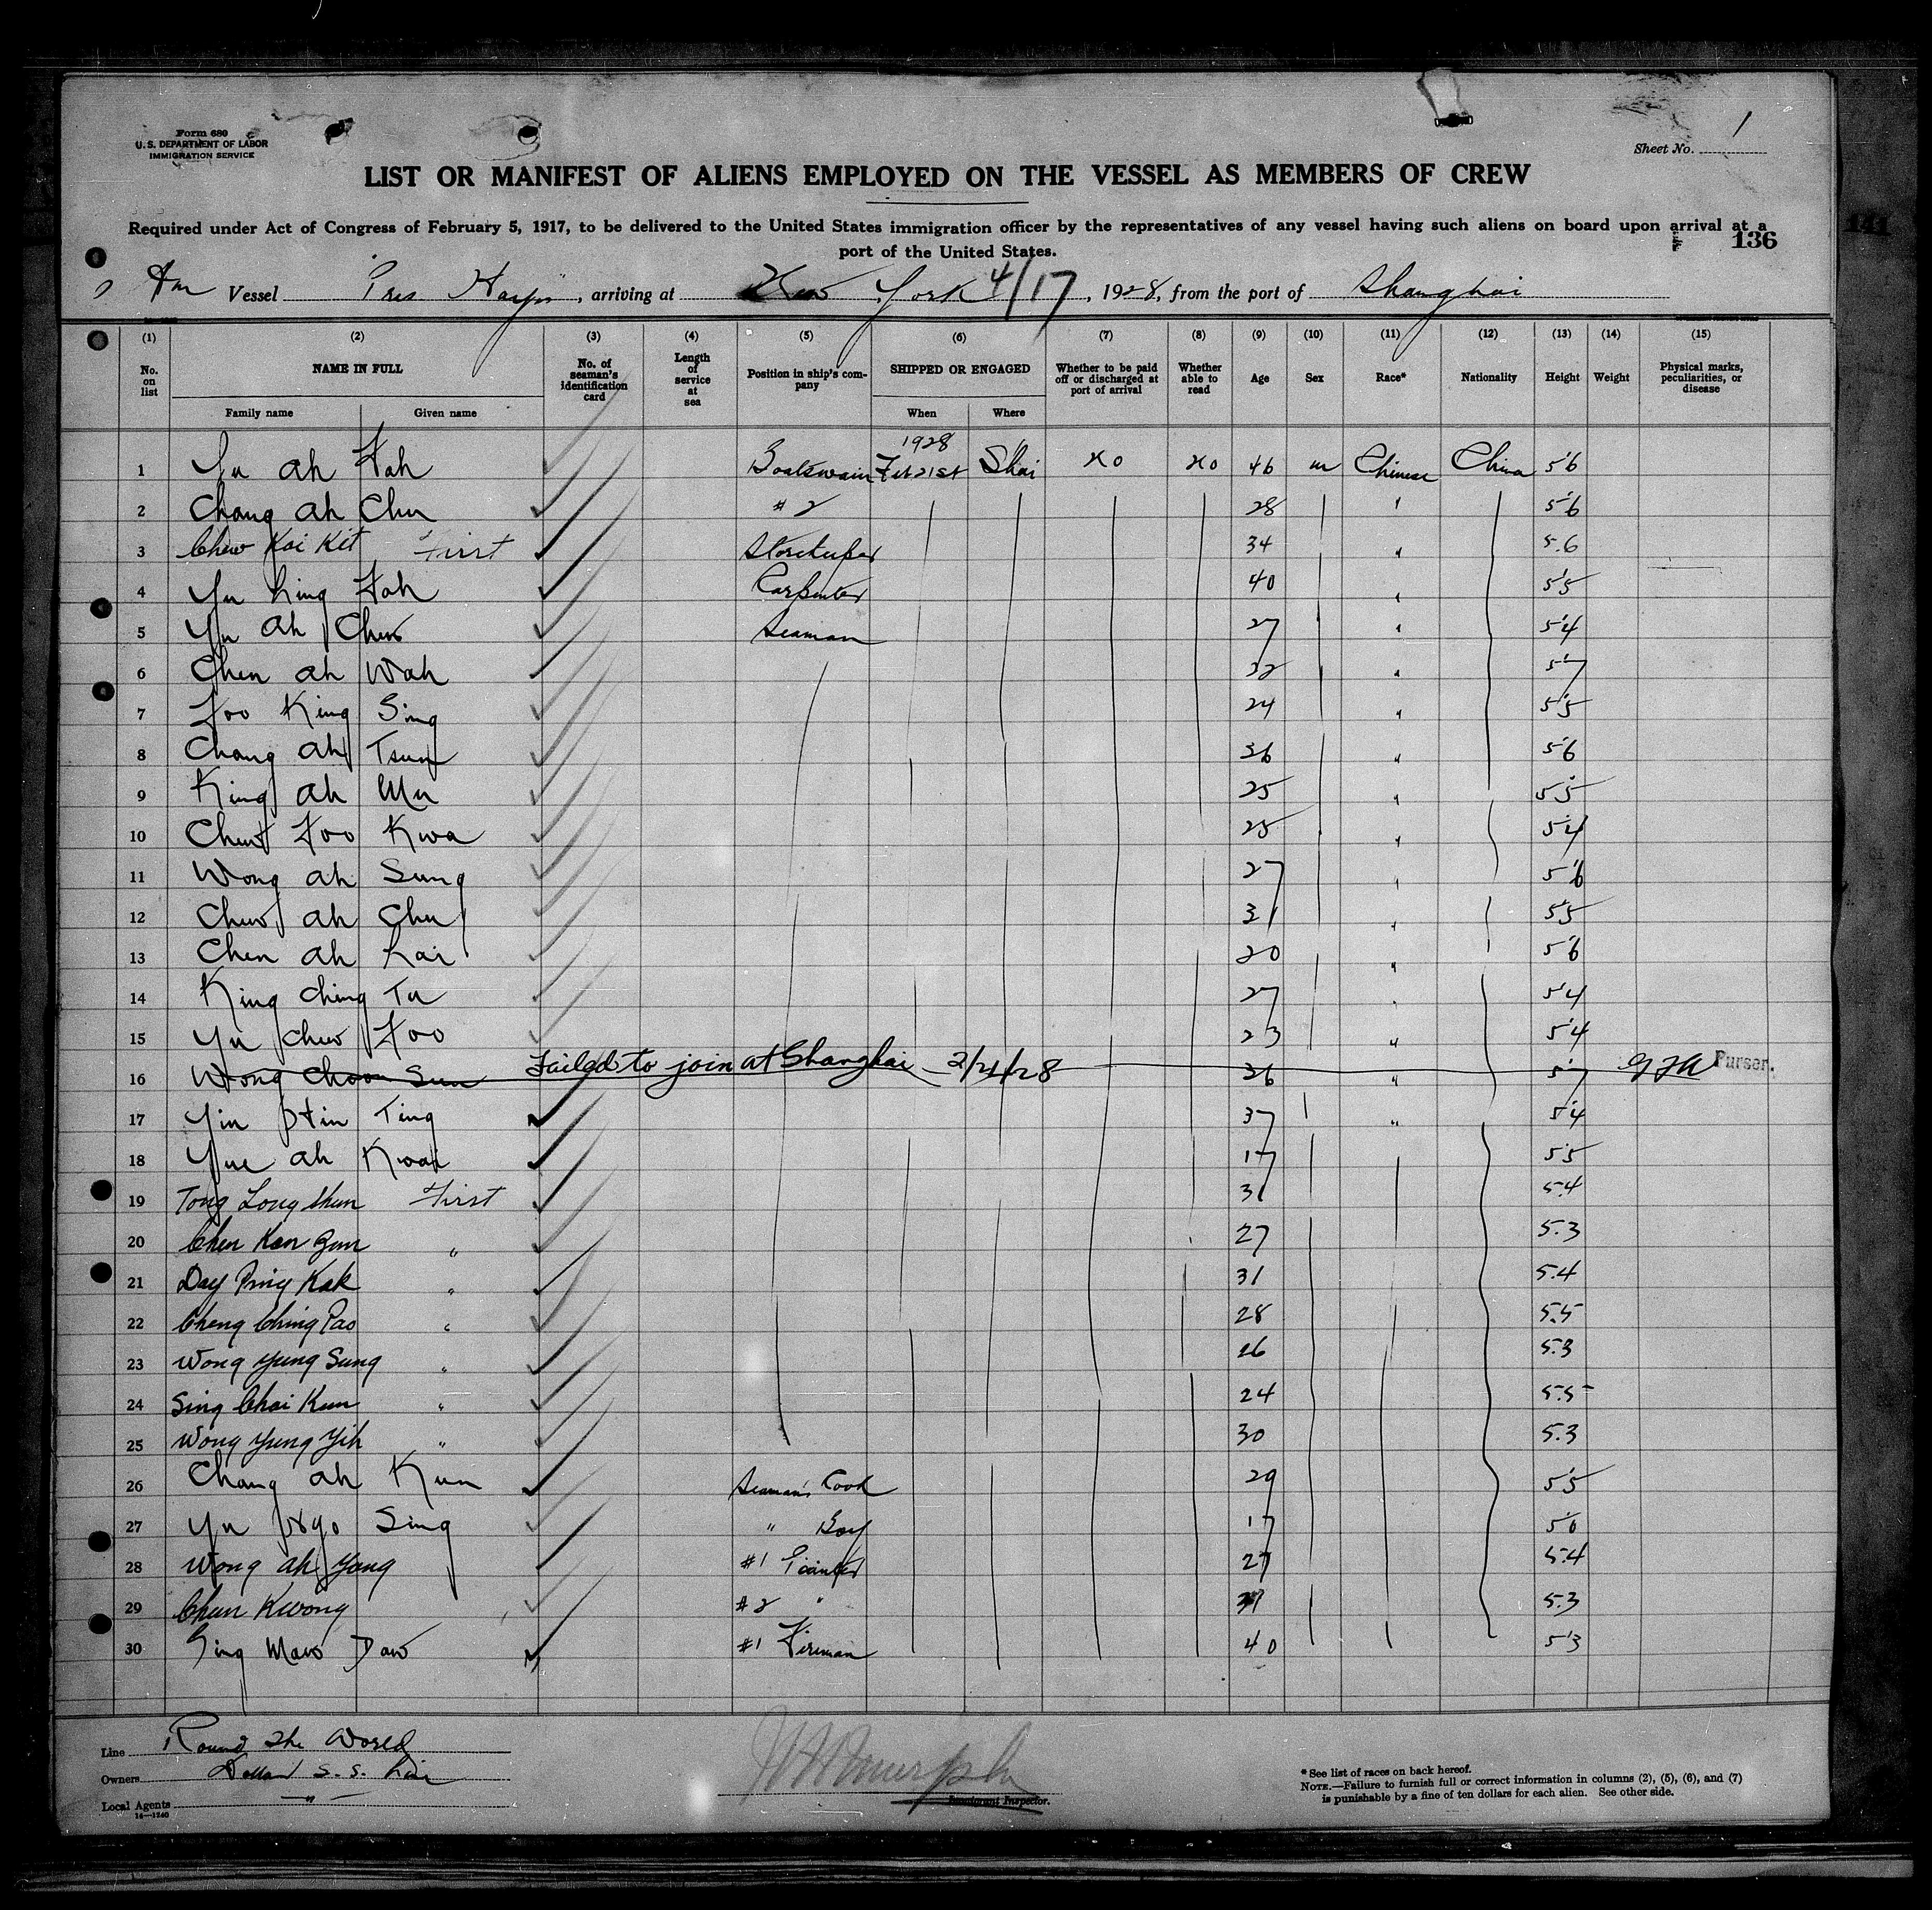 Form 680
U. S. DEPARTMENT OF LABOR
IMMIGRATION SERVICE
Sheet No. 1
LIST OR MANIFEST OF ALIENS EMPLOYED ON THE VESSEL AS MEMBERS OF CREW
Required under Act of Congress of February 5, 1917, to be delivered to the United States immigration officer by the representatives of any vessel having such aliens on board upon arrival at a
port of the United States.
136
141
Am Vessel Pres Hayes, arriving at New York 4/17, 1928, from the port of Shanghai
(1) (2) (3) (4) (5) (6) (7) (8) (9) (10) (11) (12) (13) (14) (15)
No. on list NAME IN FULL Family name Given name No. of seaman's identification card Length of service at sea Position in ship's company SHIPPED OR ENGAGED When Where Whether to be paid off or discharged at port of arrival Whether able to read Age Sex Race* Nationality Height Weight Physical marks, peculiarities, or disease
1928
1 Yu ah Foh Boatswain Feb 21st Shai no no 46 m Chinese China 5'6
2 Chang ah Chu #2 28 " 5'6
3 Chew Kai Kit First Storekeeper 34 " 5.6
4 Yu King Foh Carpenter 40 " 5'5
5 Yu ah Chew Seaman 27 " 5'4
6 Chen ah Wah 32 " 5'7
7 Foo King Sing 24 " 5'5
8 Chang ah Tsung 36 " 5'6
9 King ah Mu 25 " 5'5
10 Chew Foo Kwa 25 " 5'4
11 Wong ah Sung 27 " 5'6
12 Chew ah Chu 31 " 5'5
13 Chen ah Kai 20 " 5'6
14 King Ching Tu 27 " 5'4
15 Yu Chew Foo 23 " 5'4
16 Wong Choon Sun Failed to join at Shanghai - 2/21/28 26 " 5'7 Purser.
17 Yin Hin Ting 37 " 5'4
18 Yue ah Kwai 17 5'5
19 Tong Long Shun First 31 5.4
20 Chen Kan Gun " 27 5.3
21 Day Ping Kak " 31 5.4
22 Cheng Ching Pao " 28 5.5
23 Wong Yung Sung " 26 5.3
24 Sing Chai Kun " 24 5.5
25 Wong Yung Yih " 30 5.3
26 Chang ah Kun Seaman's Cook 29 5'5
27 Yu Ngo Sing " Boy 17 5'0
28 Wong ah Yong #1 27 5.4
29 Chun Kwong #2 " 5.3
30 Sing Maw Daw #1 Fireman 40 5'3
Line Round The World
Owners Dollar S. S. Line
Local Agents — " —
14—1240
Immigrant Inspector.
* See list of races on back hereof.
NOTE.—Failure to furnish full or correct information in columns (2), (5), (6), and (7)
is punishable by a fine of ten dollars for each alien. See other side.